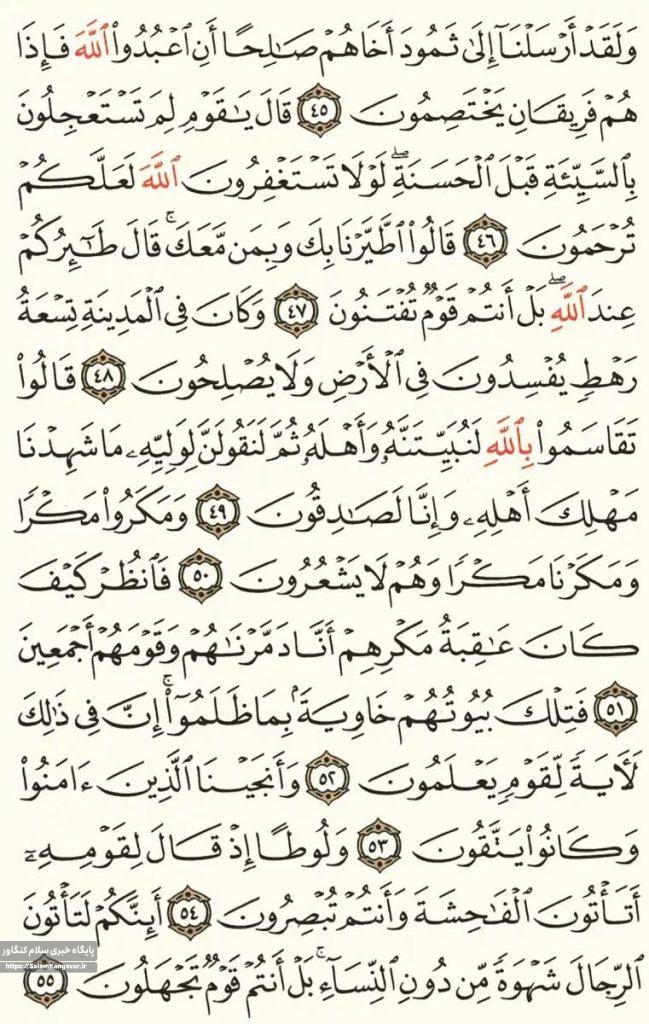 وَلَقَدۡ أَرۡسَلۡنَآ إِلَىٰ ثَمُودَ أَخَاهُمۡ صَٰلِحًا أَنِ ٱعۡبُدُواْ ٱللَّهَ فَإِذَا
هُمۡ فَرِيقَانِ يَخۡتَصِمُونَ ٤٥ قَالَ يَٰقَوۡمِ لِمَ تَسۡتَعۡجِلُونَ
بِٱلسَّيِّئَةِ قَبۡلَ ٱلۡحَسَنَةِۖ لَوۡلَا تَسۡتَغۡفِرُونَ ٱللَّهَ لَعَلَّكُمۡ
تُرۡحَمُونَ ٤٦ قَالُواْ ٱطَّيَّرۡنَا بِكَ وَبِمَن مَّعَكَۚ قَالَ طَٰٓئِرُكُمۡ
عِندَ ٱللَّهِۖ بَلۡ أَنتُمۡ قَوۡمٞ تُفۡتَنُونَ ٤٧ وَكَانَ فِي ٱلۡمَدِينَةِ تِسۡعَةُ
رَهۡطٖ يُفۡسِدُونَ فِي ٱلۡأَرۡضِ وَلَا يُصۡلِحُونَ ٤٨ قَالُواْ
تَقَاسَمُواْ بِٱللَّهِ لَنُبَيِّتَنَّهُۥ وَأَهۡلَهُۥ ثُمَّ لَنَقُولَنَّ لِوَلِيِّهِۦ مَا شَهِدۡنَا
مَهۡلِكَ أَهۡلِهِۦ وَإِنَّا لَصَٰدِقُونَ ٤٩ وَمَكَرُواْ مَكۡرٗا
وَمَكَرۡنَا مَكۡرٗا وَهُمۡ لَا يَشۡعُرُونَ ٥٠ فَٱنظُرۡ كَيۡفَ
كَانَ عَٰقِبَةُ مَكۡرِهِمۡ أَنَّا دَمَّرۡنَٰهُمۡ وَقَوۡمَهُمۡ أَجۡمَعِينَ
٥١ فَتِلۡكَ بُيُوتُهُمۡ خَاوِيَةَۢ بِمَا ظَلَمُوٓاْۚ إِنَّ فِي ذَٰلِكَ
لَأٓيَةٗ لِّقَوۡمٖ يَعۡلَمُونَ ٥٢ وَأَنجَيۡنَا ٱلَّذِينَ ءَامَنُواْ
وَكَانُواْ يَتَّقُونَ ٥٣ وَلُوطًا إِذۡ قَالَ لِقَوۡمِهِۦٓ
أَتَأۡتُونَ ٱلۡفَٰحِشَةَ وَأَنتُمۡ تُبۡصِرُونَ ٥٤ أَئِنَّكُمۡ لَتَأۡتُونَ
ٱلرِّجَالَ شَهۡوَةٗ مِّن دُونِ ٱلنِّسَآءِۚ بَلۡ أَنتُمۡ قَوۡمٞ تَجۡهَلُونَ ٥٥
پایگاه خبری سلام کنگاور
https://SalamKangavar.ir